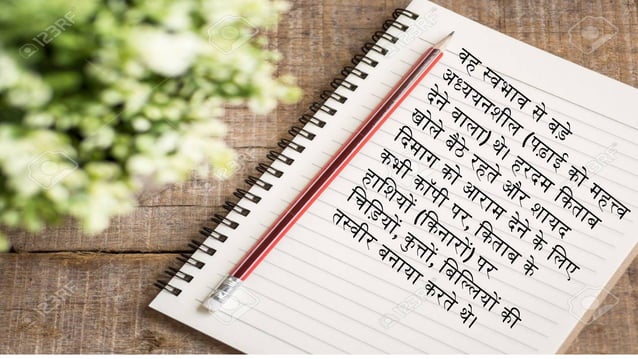 वह स्वभाव से बडे
अध्ययनशील (पढ़ाई को महत्त्व
देने वाला) थे। हरदम किताब
खोले बैठे रहते और शायद
दिमाग को आराम देने के लिए
कभी कॉपी पर, किताब के
हाशियों (किनारों) पर
चिडियों, कुत्तों, बिल्लियों की
तस्वीर बनाया करते थे।
123RF